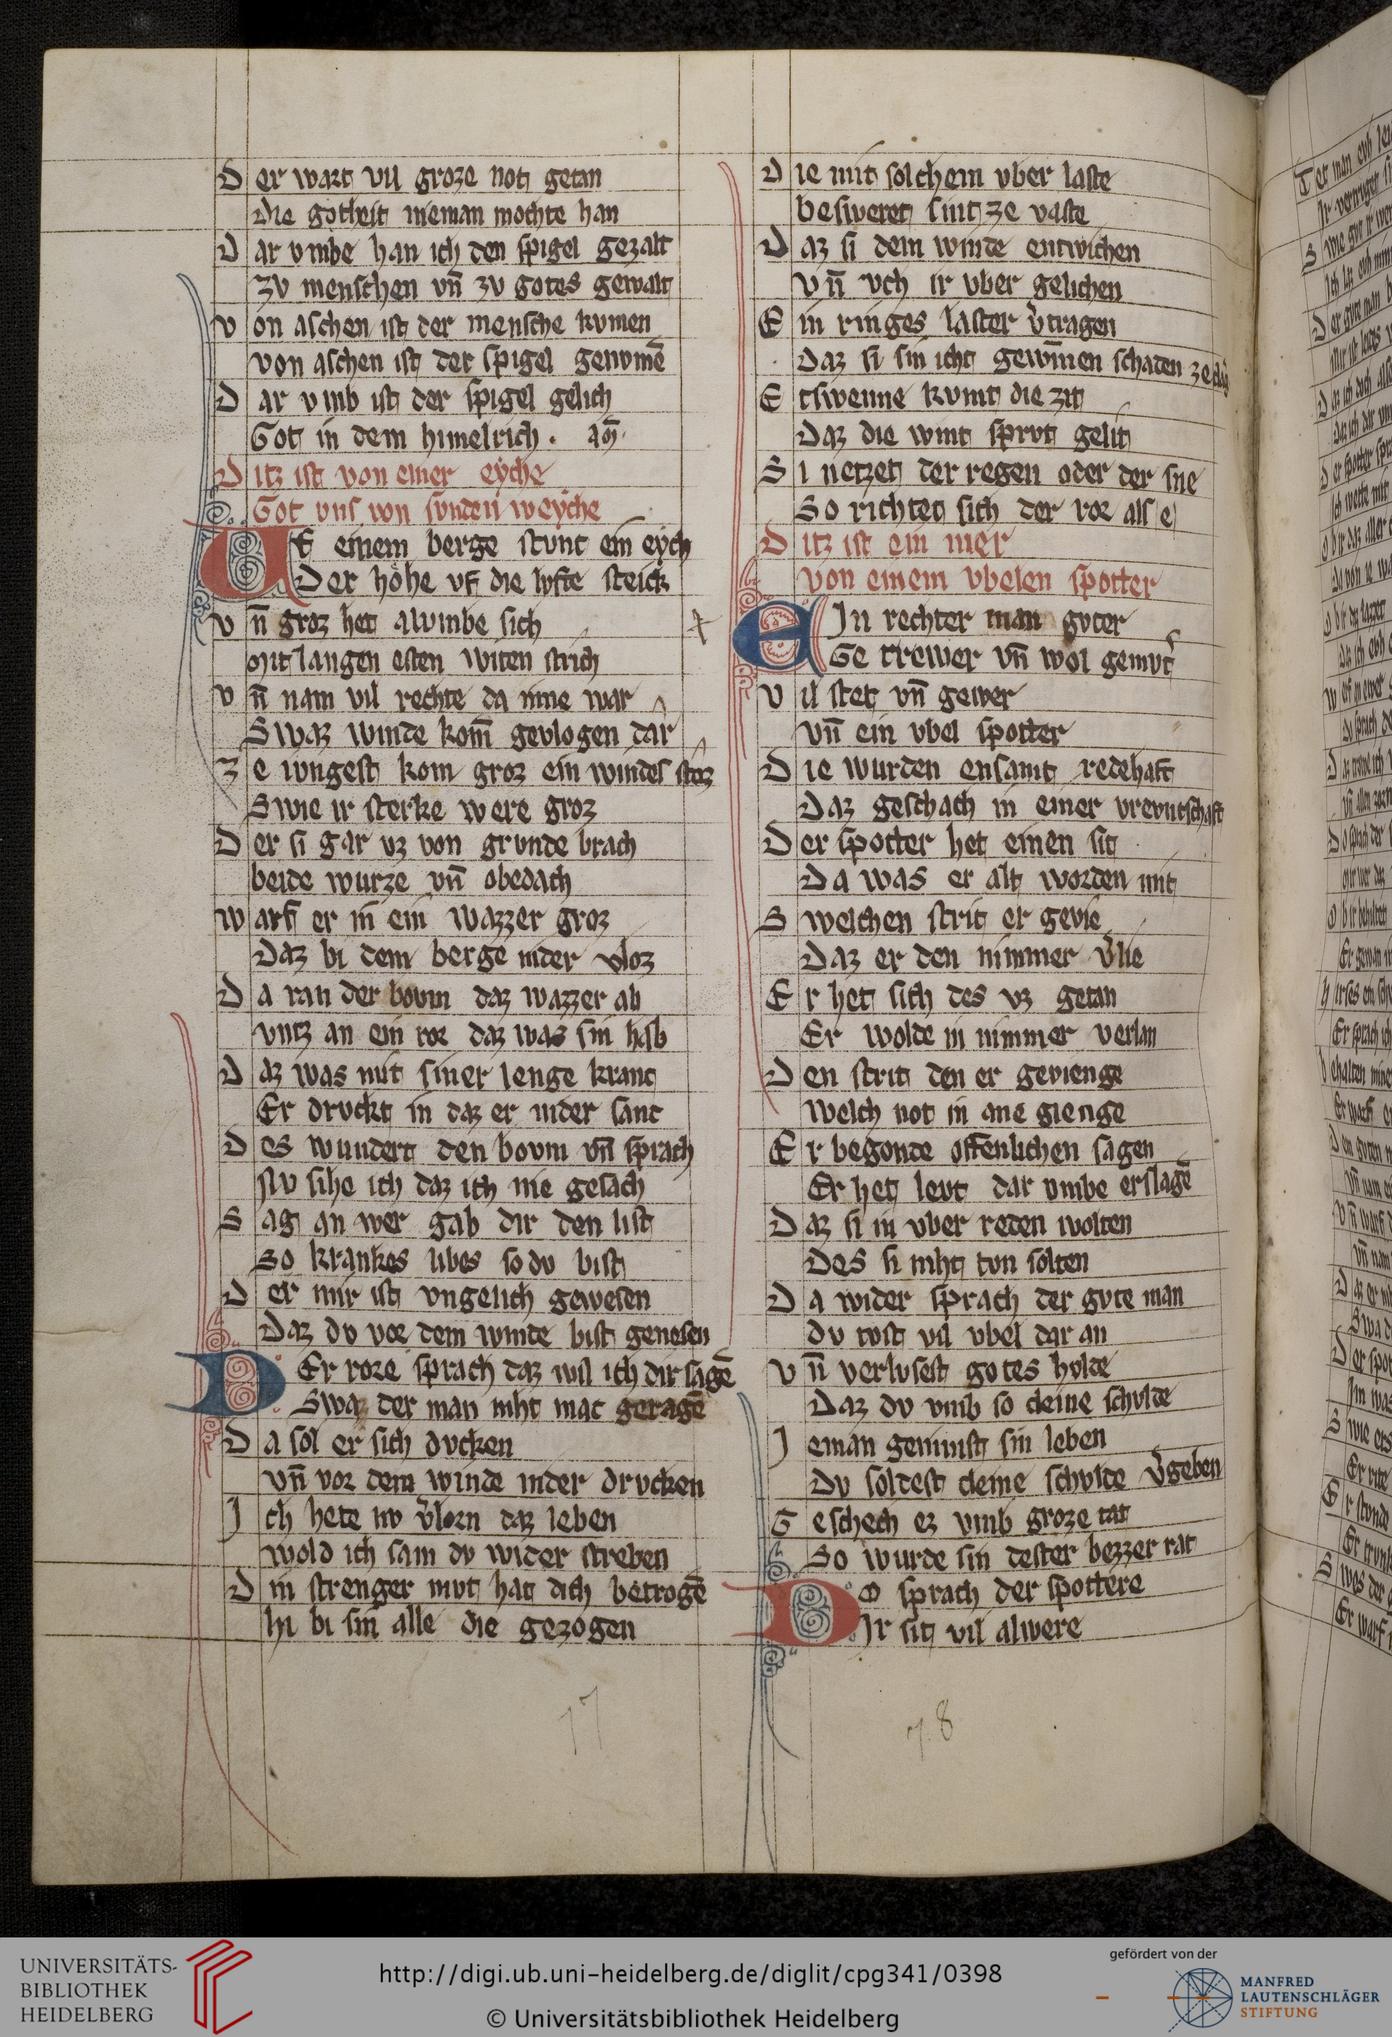 Der wart vil groze not getan
Die gotheit nieman mochte han
Dar vmbe han ich den spigel gezalt
zv menschen vn̄ zv gotes gewalt
von aschen ist der mensche kvmen
von aschen ist der spigel genvmē
Dar vmb ist der spigel gelich
Got in dem himelrich . am̄.
Ditz ist von einer eyche
Got vns von svnden weyche
Uf einem berge stvnt ein eych
Der hohe vf die lvfte steich
vn̄ groz het alvmbe sich
mit langen esten witen strich
vn̄ nam vil rechte da nine war
Swaz winde kom̄ gevlogen dar
ze ivngest kom groz ein windes stoz
Swie ir sterke were groz
Der si gar vz von grvnde brach
beide wurze vn̄ obedach
warf er in ein wazzer groz
Daz bi dem berge nider vloz
Da ran der bovm daz wazzer ab
vntz an ein ror daz was sin hab
Daz was mit siner lenge kranc
Er drvckt in daz er nider sanc
Des wundert den bovm vn̄ sprach
Nv sihe ich daz ich nie gesach
Sag an wer gab dir den list
So krankes libes so dv bist
Der mir ist vngelich gewesen
Daz dv vor dem winde bist genesen
Der rore sprach daz wil ich dir sagē
Swaz der man niht mac geragē
Da sol er sich dvcken
vn̄ vor dem winde nider drvcken
Ich hete nv v̓lorn daz leben
wold ich sam dv wider streben
Din strenger mvt hat dich betrogē
hi bi sin alle die gezogen
Die mit solchem vber laste
besweret sint ze vaste
Daz si dem winde entwichen
vn̄ vch ir vber gelichen
Ein ringes laster v̓tragen
Daz si sin icht gewinnen schaden
Etswenne kvmt die zit
Daz die wint sprvt gelit
Si netzet der regen oder der sne
So richtet sich der ror als e
Ditz ist ein mer
von einem vbelen spotter
Ein rechter man gvter
Getrewer vn̄ wol gemvt̓
vil stet vn̄ gewer
vn̄ ein vbel spotter
Die wurden ensamt redehaft
Daz geschach in einer vrevntschaft
Der spotter het einen sit
Da was er alt worden mit
Swelchen strit er gevie
Daz er den nimmer v̓lie
Er het sich des vz getan
Er wolde in nimmer verlan
Den strit den er gevienge
welch not in ane gienge
Er begonde offenlichen sagen
Er het levt dar vmbe erslagē
Daz si in vber reden wolten
Des si niht tvn solten
Da wider sprach der gvte man
dv tvst vil vbel dar an
vn̄ verlvsest gotes hvlde
Daz dv vmb so cleine schvlde
Ieman genimst sin leben
Dv soldest cleine schvlde v̓geben
Geschech ez vmb groze tat
So wurde sin dester bezzer rat
Do sprach der spottere
Ir sit vil alwere
77
78
UNIVERSITÄTS-
BIBLIOTHEK
HEIDELBERG
http://digi.ub.uni-heidelberg.de/diglit/cpg341/0398
© Universitätsbibliothek Heidelberg
gefördert von der
MANFRED
LAUTENSCHLÄGER
STIFTUNG